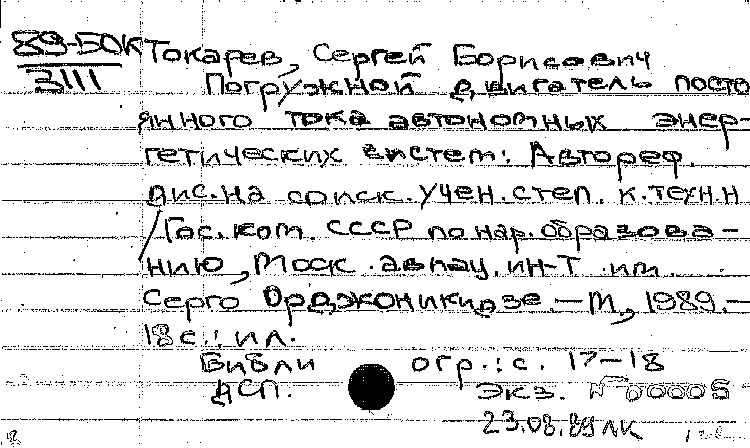 89-50К Токарев, Сергей Борисович
3111 Погружной двигатель посто
янного тока автономных энер-
гетических систем: Автореф.
дис. на соиск. учен. степ. к.техн.н
/Гос. ком. СССР по нар. образова-
нию, Моск. авиац. ин-т им.
Серго Орджоникидзе. — М., 1989. —
18 с.: ил.
Библиогр.: с. 17-18
ДСП. Экз. № 00005
23.08.89 ЛК